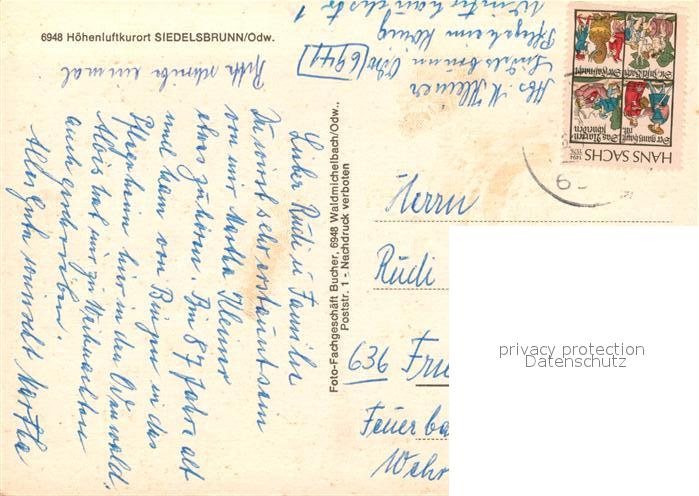 6948 Höhenluftkurort SIEDELSBRUNN/Odw.
Bitte schreibe einmal
Lieber Rudi u Familie
Du wirst sehr erstaunt sein
von mir Martha Kleiner
etwas zu hören. Bin 87 Jahre alt
und kam von Bingen in das
Pflegeheim hier in den Odenwald.
Alois hat mir zu Weihnachten
auch geschrieben.
Alles gute wünscht Martha
Foto-Fachgeschäft Bucher, 6948 Waldmichelbach/Odw.,
Poststr. 1 - Nachdruck verboten
Abs. M Kleiner
Siedelsbrunn Odw (6941)
Pflegeheim König
HANS SACHS
1494
1576
Das Narren
schneiden
Herrn
Rudi
636
Feuerba
Wehr
privacy protection
Datenschutz